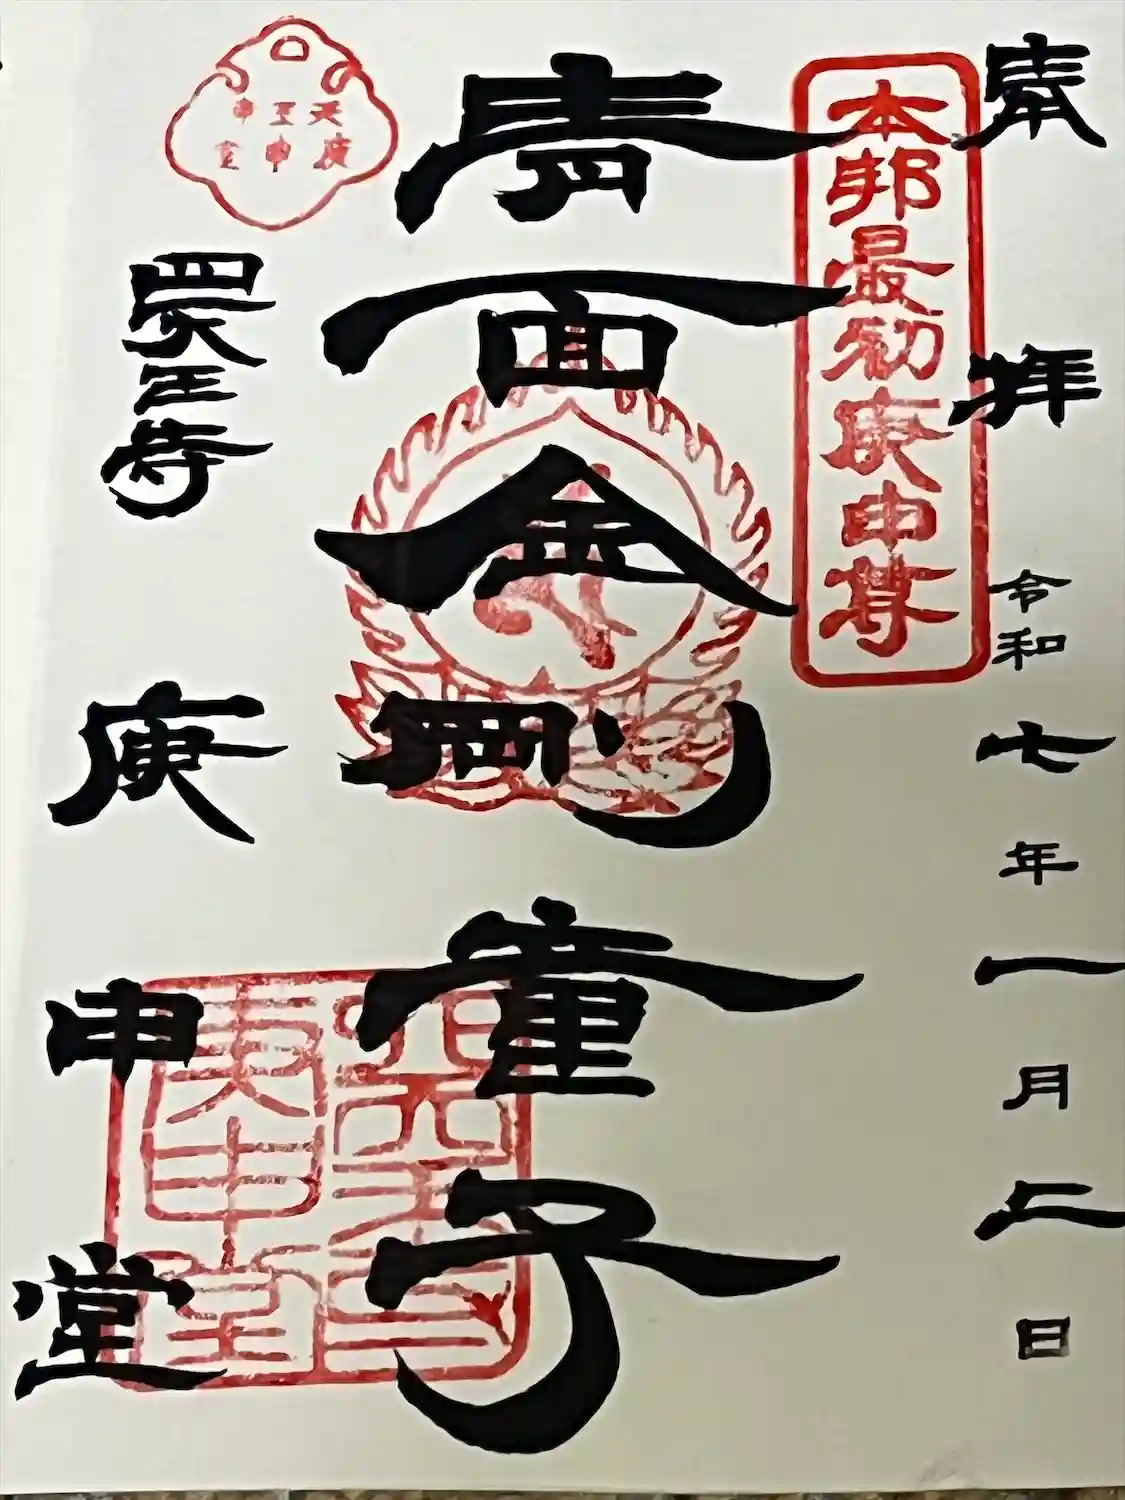 奉拝
令和七年一月二日
本邦最初庚申尊
青面金剛童子
四天王寺
庚申堂
四天王寺
庚申堂